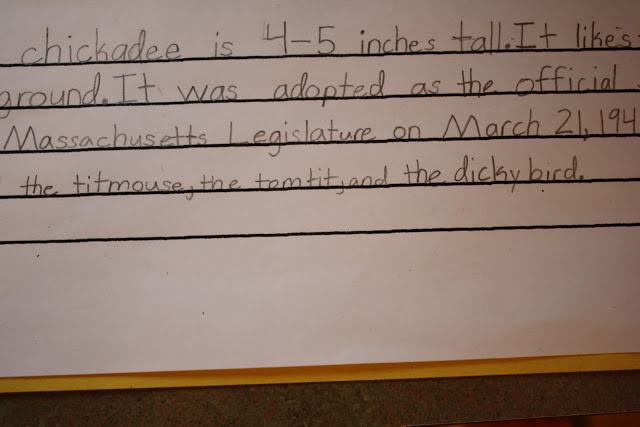 chickadee is 4-5 inches tall. It likes
ground. It was adopted as the official
Massachusetts Legislature on March 21, 194
the titmouse, the tomtit, and the dickybird.